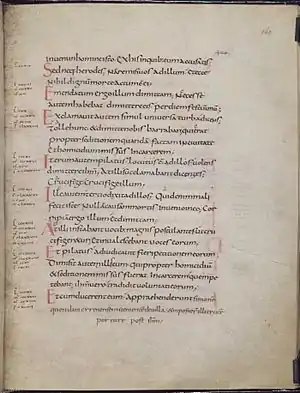 Inueni inhomine isto exhis inquib; eum accusatis
Sed neq; herodes Nam remisi uos adillum & ecce
Nihil dignum morte actum ei
Emendatum ergo illum dimittam, Necesse
autem habebat dimittere eis perdiem festum unum
Exclamauit autem simul uniuersa turba dicens
Tolle hunc & dimitte nobis barabban qui erat
propter seditionem quandam factam inciuitate
Et homicidium missus Incarcerem
Iterum autem pilatus locutus ē adillos uolens
dimittere ihm, Atilli succlamabant dicentes
Crucifige Crucifige illum
Ille autem tertio dixit adillos Quid enim mali
fecit iste Nullam causam mortis Inuenio Ineo, Cor
ripiam ergo illum et dimittam
Atilli instabant uocib; magnis postulantes ut cru
cifigeretur et inualescebant uoces eorum
Et pilatus adiudicauit fieri petitionem eorum
Dimisit autem illis eum qui propter homicidiū
& seditionem missus fuerat Incarcerem quem pe
tebant, ihm uero tradidit uoluntati eorum
Et cum ducerent eum Apprehenderunt simonē
quendam cyrenensem uenientem deuilla, & imposuer illi crucē
portare post ihm